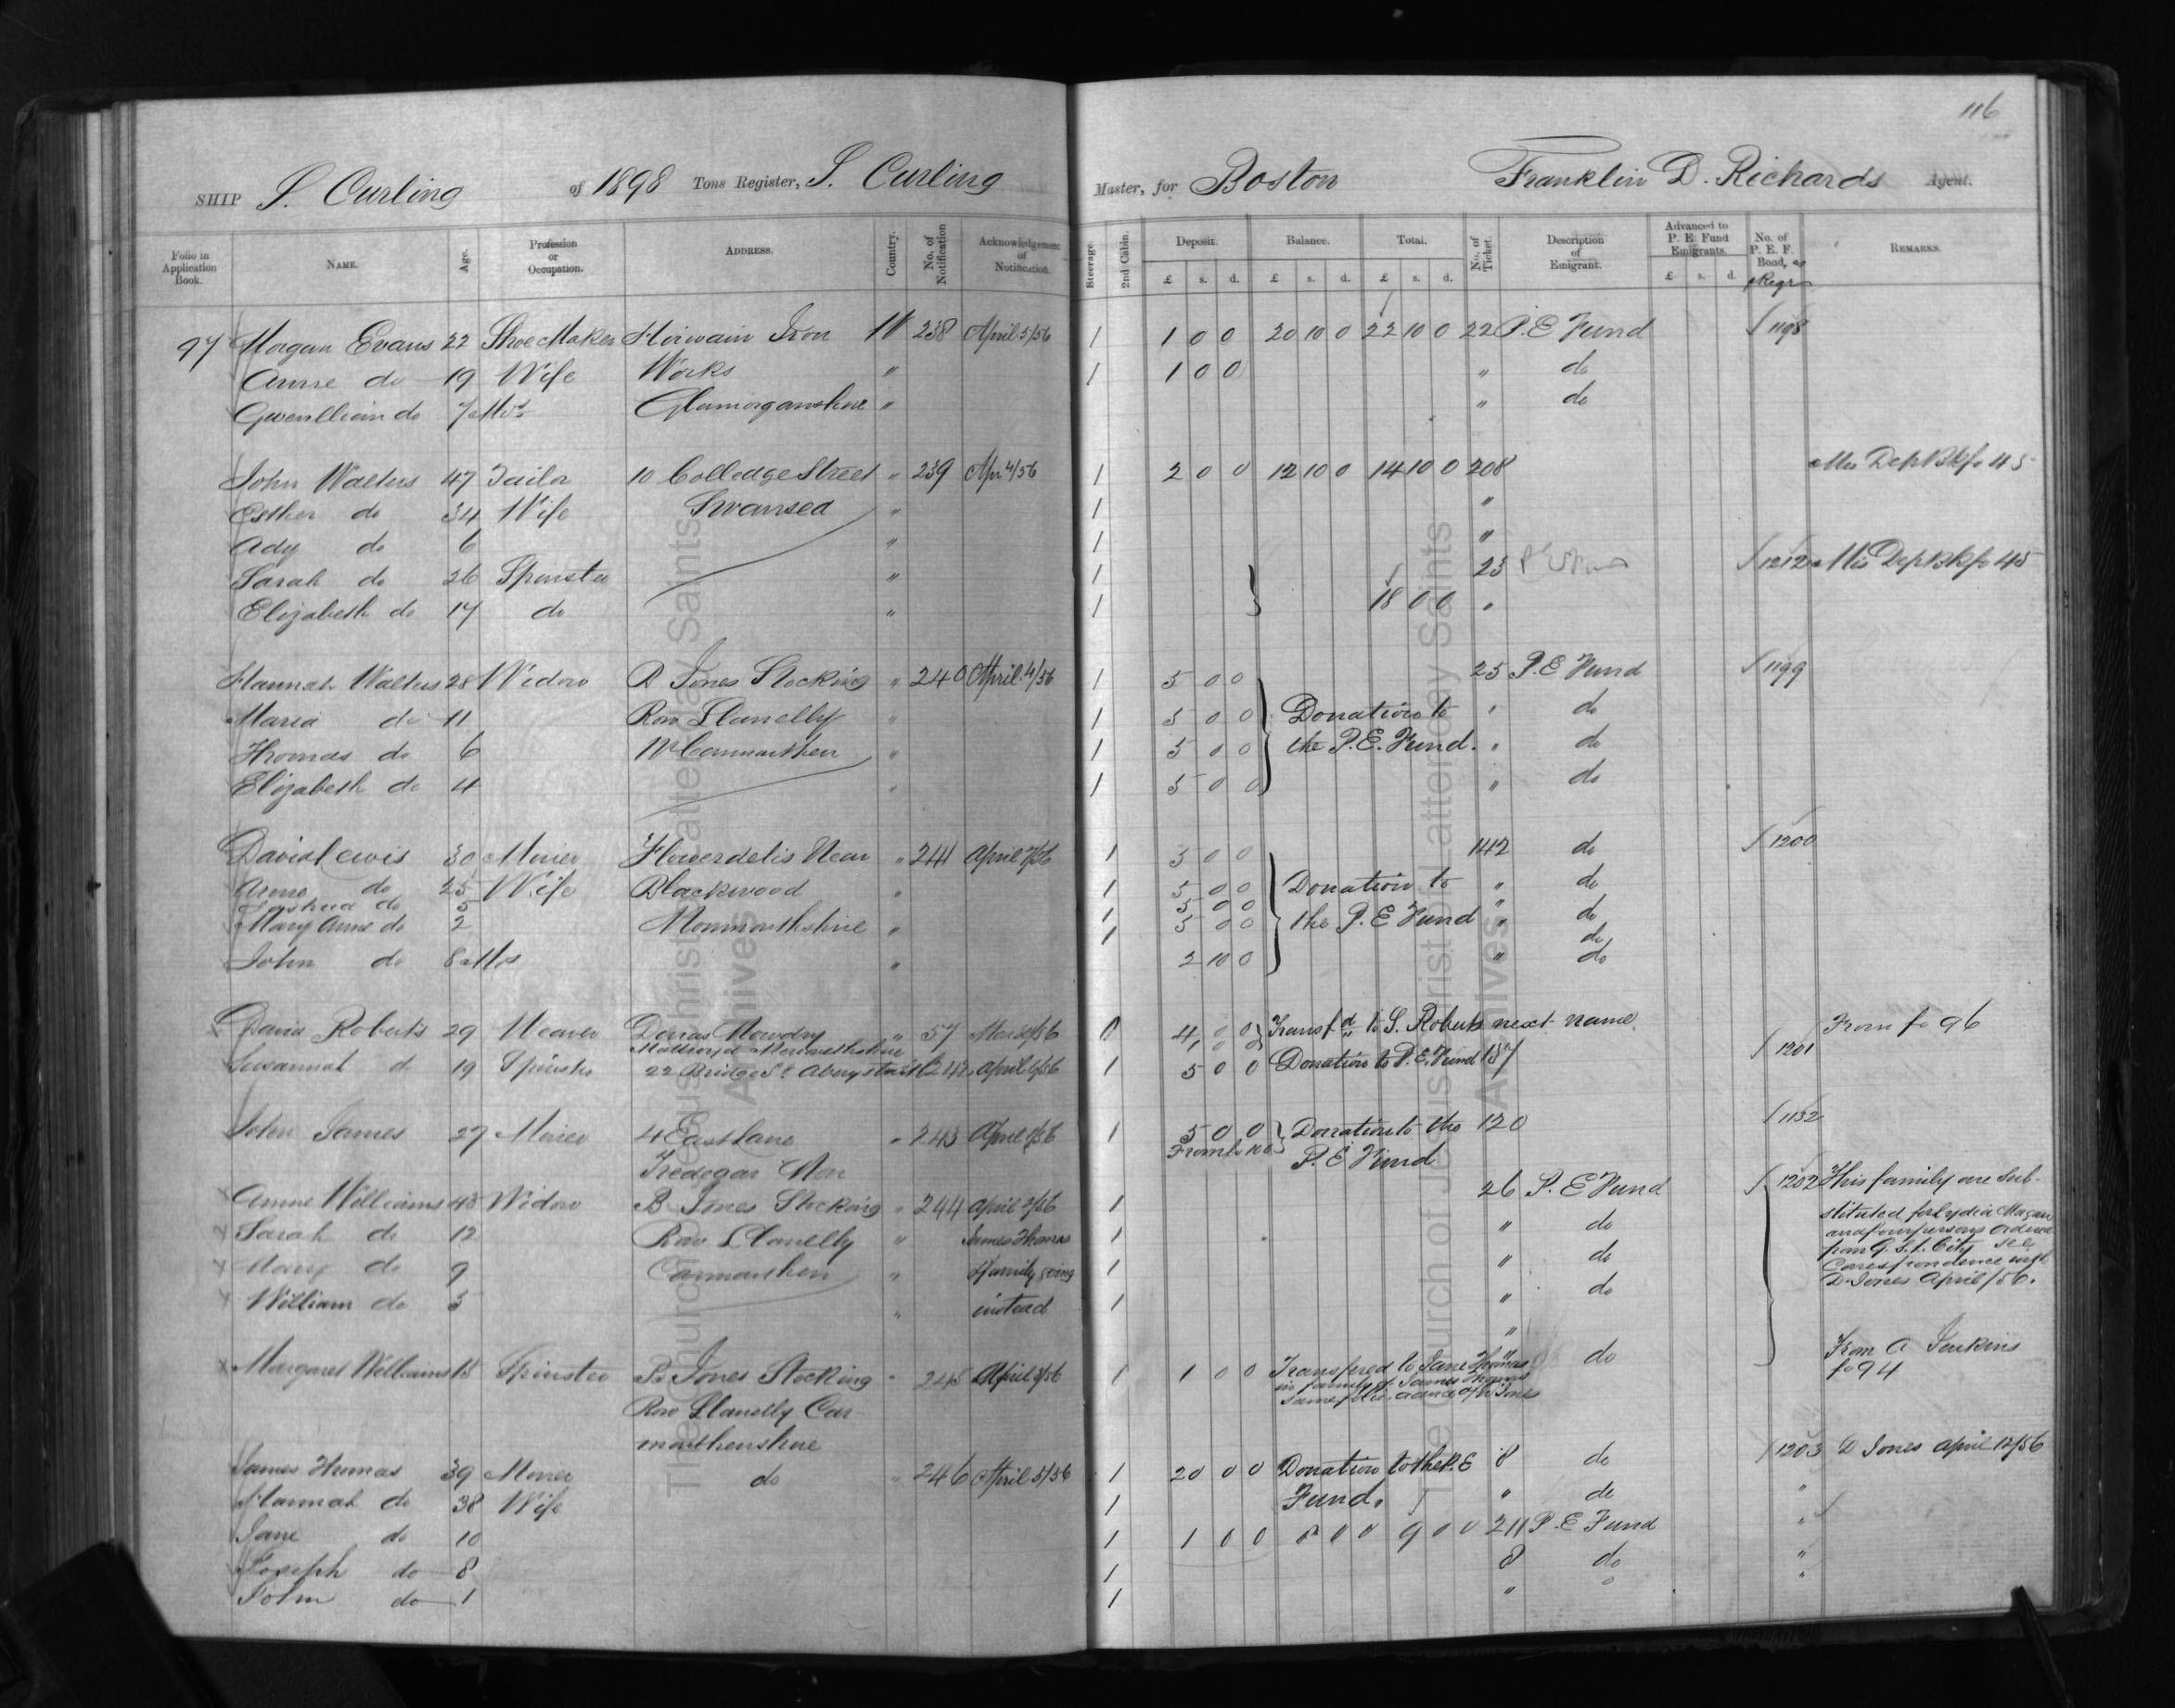 116
SHIP S. Curling of 1898 Tons Register, S. Curling Master, for Boston Franklin D. Richards Agent.
Folio in Application Book. NAME. Age. Profession or Occupation. ADDRESS. Country. No. of Notification Acknowledgement of Notification. Steerage. 2nd Cabin. Deposit. Balance. Total. No. of Ticket. Description of Emigrant. Advanced to P. E. Fund Emigrants. No. of P. E. F. Bond, REMARKS.
£ s. d. £ s. d. £ s. d. £ s. d.
97 Morgan Evans 22 Shoe Maker Hirwain Iron W 238 April 5/56 1 1 0 0 20 10 0 22 10 0 22 P.E Fund 1198
Anne do 19 Wife Works " 1 1 0 0 " do
Gwenllian do 7 Mos Glamorganshire " " do
John Walters 47 Tailor 10 Colledge Street " 239 Apr 4/56 1 2 0 0 12 10 0 14 10 0 208 Mis Dep Bk fo 45
Esther do 34 Wife Swansea " 1 "
Ady do 6 " 1 "
Sarah do 26 Spinster " 1 23 1212 Mis Dep Bk fo 45
Elizabeth do 17 do " 1 18 0 0 "
Hannah Walters 28 Widow B Jones Stocking " 240 April 4/56 1 5 0 0 25 P.E Fund 1199
Maria do 11 Row Llanelly " 1 5 0 0 Donation to " do
Thomas do 6 Carmarthen " 1 5 0 0 the P.E. Fund. " do
Elizabeth do 4 " 1 5 0 0 " do
David Lewis 30 Miner Flowerdelis Near " 241 April 7/56 1 5 0 0 142 do 1200
Anne do 25 Wife Blackwood " 1 5 0 0 Donation to " do
Joshua do 5 5 0 0 "
Mary Anne do 2 Monmouthshire " 1 5 0 0 the P.E Fund " do
do
John do 8 Mos " 2 10 0 " do
David Roberts 29 Weaver " 57 0 4 0 0 Transfd to S. Roberts next name. From fo 96
Susannah do 19 Spinster 22 Bridge St 242 April 1 5 0 0 Donation to P.E. Fund 157 1201
John James 27 Miner 4 East Lane " 243 April 1 5 0 0 Donation to the 120 1132
Tredegar Mon From fo 100 P.E Fund
Anne Williams 43 Widow B Jones Stocking " 244 April 1 26 P.E Fund 1202 This family are sub-
Sarah do 12 Row Llanelly " James Thomas 1 " do stituted for Lydia Magan
and four persons
Mary do 9 Carmarthen " Family going 1 " do from G. S. L. City see
Correspondence with
William do 5 " instead 1 " do D. Jones April/56.
"
Margaret Williams 15 Spinster B Jones Stocking " 245 April 1 1 0 0 Transfered to Jane Thomas do From A Jenkins
in family of James Thomas fo 94
Row Llanelly Car same folio.
marthenshire
James Thomas 39 Miner do " 246 April 5/56 1 20 0 0 Donation to the P.E 8 do 1203 D Jones April 12/56
Hannah do 38 Wife 1 Fund. " do "
Jane do 10 1 1 0 0 8 0 0 9 0 0 211 P.E Fund "
Joseph do 8 1 8 do "
John do 1 1 " "
The Church of Jesus Christ of Latter-day Saints
Archives
The Church of Jesus Christ of Latter-day Saints
Archives